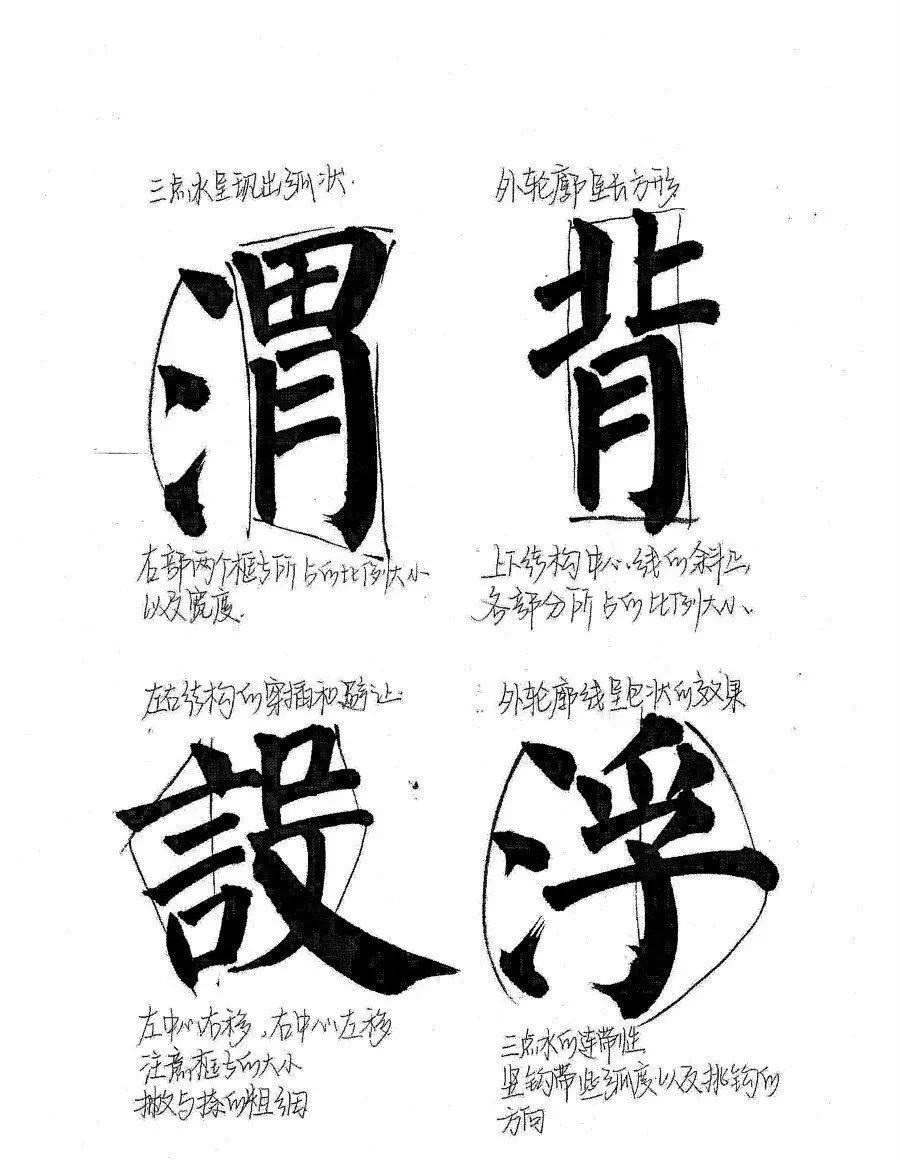 三点水呈现出弧状.
渭
右部两个框与所占的比例大小
以及宽度.
外轮廓呈长方形
背
上下结构中心线的斜正
各部分所占的比例大小、
左右结构的穿插和避让.
設
左中心右移、右中心左移
注意框与的大小
撇与捺的粗细
外轮廓线呈包状的效果
浮
三点水的连带性
竖钩带些弧度以及挑钩的
方向